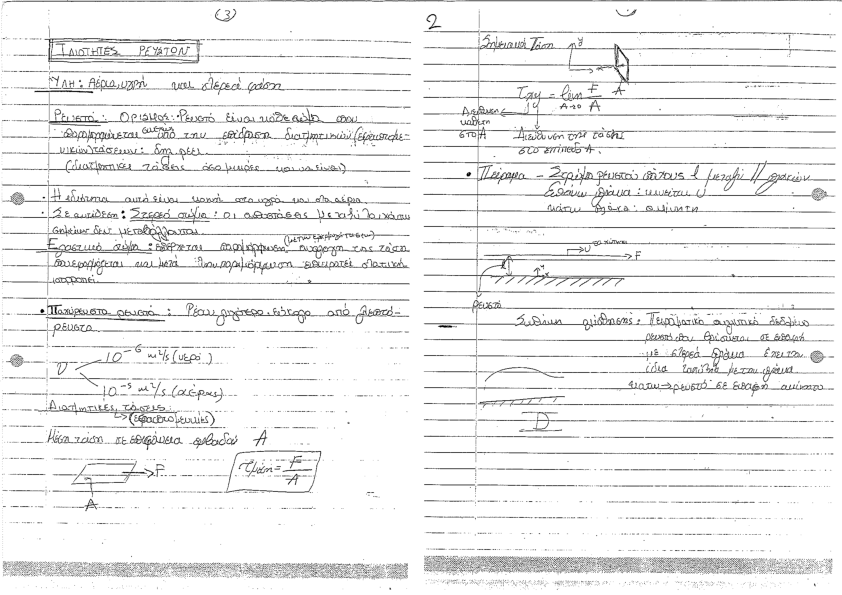 (3)
ΙΔΙΟΤΗΤΕΣ ΡΕΥΣΤΩΝ
ΥΛΗ: Αέρια, υγρή και στερεά φάση
Ρευστό: Ορισμός: Ρευστό είναι κάθε σώμα που
παραμορφώνεται από την επίδραση διατμητικών (εφαπτομε-
νικών) τάσεων: δηλ. ρέει
(διατμητικές τάσεις όσο μικρές και να είναι)
• Η ιδιότητα αυτή είναι κοινή στα υγρά και στα αέρια
• Σε αντίθεση: Στερεό σώμα: οι αποστάσεις μεταξύ των
σημείων δεν μεταβάλλονται.
Ελαστικό σώμα: παραμόρφωση ανάλογη της τάσης
που εφαρμόζεται και μετά την παραμόρφωση επικρατεί στατική
ισορροπία.
• Παχύρευστα ρευστά: Ρέουν λιγότερο εύκολα από λεπτό-
ρευστα
ν
10⁻⁶ m²/s (νερό)
10⁻⁵ m²/s (αέρας)
Διατμητικές τάσεις
(εφαπτομενικές)
Μέση τάση σε επιφάνεια εμβαδού A
F
A
τμέση = F/A
2
Σημειακή Τάση
y
x
A
τxy = lim F/A
A→0
Διεύθυνση
κάθετη
στο A
Διεύθυνση της τάσης
στο επίπεδο A.
• Πείραμα - Στρώμα ρευστού πάχους l μεταξύ // πλακών
Επάνω πλάκα: κινείται U
κάτω πλάκα: ακίνητη
U
F
l
y
x
ρευστό
Συνθήκη μη ολίσθησης: Πειραματικά
ρευστό που βρίσκεται σε επαφή
με στερεά πλάκα έχει την
ίδια ταχύτητα με την πλάκα
κάτω → ρευστό σε επαφή ακίνητο
D